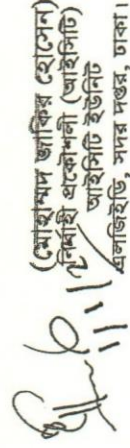 (মোহাম্মদ জাকির হোসেন)
নির্বাহী প্রকৌশলী (আইসিটি)
আইসিটি ইউনিট
এলজিইডি, সদর দপ্তর, ঢাকা।